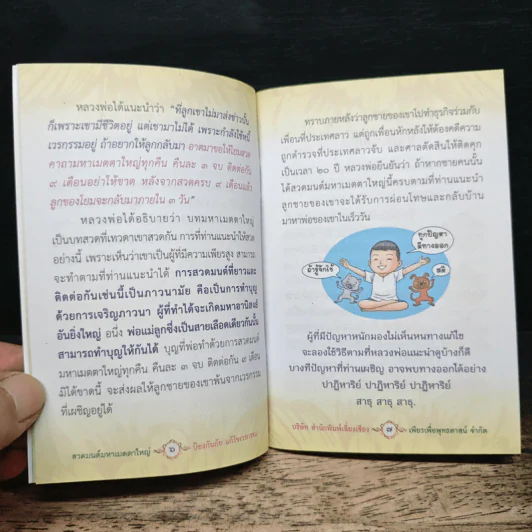 หลวงพ่อได้แนะนำว่า "ที่ลูกเขาไม่มาส่งข่าวนั้น
ก็เพราะเขามีชีวิตอยู่ แต่เขามาไม่ได้ เพราะกำลังใช้หนี้
เวรกรรมอยู่ ถ้าอยากให้ลูกกลับมา อาตมาขอให้โยมสวด
คาถามหาเมตตาใหญ่ทุกคืน คืนละ ๓ จบ ติดต่อกัน
๙ เดือนอย่าให้ขาด หลังจากสวดครบ ๙ เดือนแล้ว
ลูกของโยมจะกลับมาภายใน ๓ วัน"
หลวงพ่อได้อธิบายว่า บทมหาเมตตาใหญ่
เป็นบทสวดที่เทวดาเขาสวดกัน การที่ท่านแนะนำให้สวด
อย่างนี้ เพราะเห็นว่าเขาเป็นผู้ที่มีความเพียรสูง สามารถ
จะทำตามที่ท่านแนะนำได้ การสวดมนต์ที่ยาวและ
ติดต่อกันเช่นนี้เป็นภาวนามัย คือเป็นการทำบุญ
ด้วยการเจริญภาวนา ผู้ที่ทำได้จะเกิดมหาอานิสงส์
อันยิ่งใหญ่ อนึ่ง พ่อแม่ลูกซึ่งเป็นสายเลือดเดียวกันนั้น
สามารถทำบุญให้กันได้ บุญที่พ่อทำด้วยการสวดมนต์
มหาเมตตาใหญ่ทุกคืน คืนละ ๓ จบ ติดต่อกัน ๙ เดือน
มิได้ขาดนี้ จะส่งผลให้ลูกชายของเขาพ้นจากเวรกรรม
ที่เผชิญอยู่ได้
สวดมนต์มหาเมตตาใหญ่ ๖ ป้องกันภัย แก้ไขวรกรรม
ทราบภายหลังว่าลูกชายของเขาไปทำธุรกิจร่วมกับ
เพื่อนที่ประเทศลาว แต่ถูกเพื่อนหักหลังให้ต้องคดีความ
ถูกตำรวจที่ประเทศลาวจับ และศาลตัดสินให้ติดคุก
เป็นเวลา ๒๐ ปี หลวงพ่อยืนยันว่า ถ้าหากชายคนนั้น
ได้สวดมนต์มหาเมตตาใหญ่นี้ครบตามที่ท่านแนะนำ
ลูกชายของเขาจะได้รับการผ่อนโทษและกลับบ้าน
มาหาพ่อของเขาในเร็ววัน
ทุกปัญหา
มีทางออก
ถ้ารู้จักใช้
สติ
ผู้ที่มีปัญหาหนักมองไม่เห็นหนทางแก้ไข
จะลองใช้วิธีตามที่หลวงพ่อแนะนำดูบ้างก็ดี
บางทีปัญหาที่ท่านเผชิญ อาจพบทางออกได้อย่าง
ปาฏิหาริย์ ปาฏิหาริย์ ปาฏิหาริย์
สาธุ สาธุ สาธุ.
บริษัท สำนักพิมพ์เลี่ยงเชียง ๗ เพียรเพื่อพุทธศาสน์ จำกัด